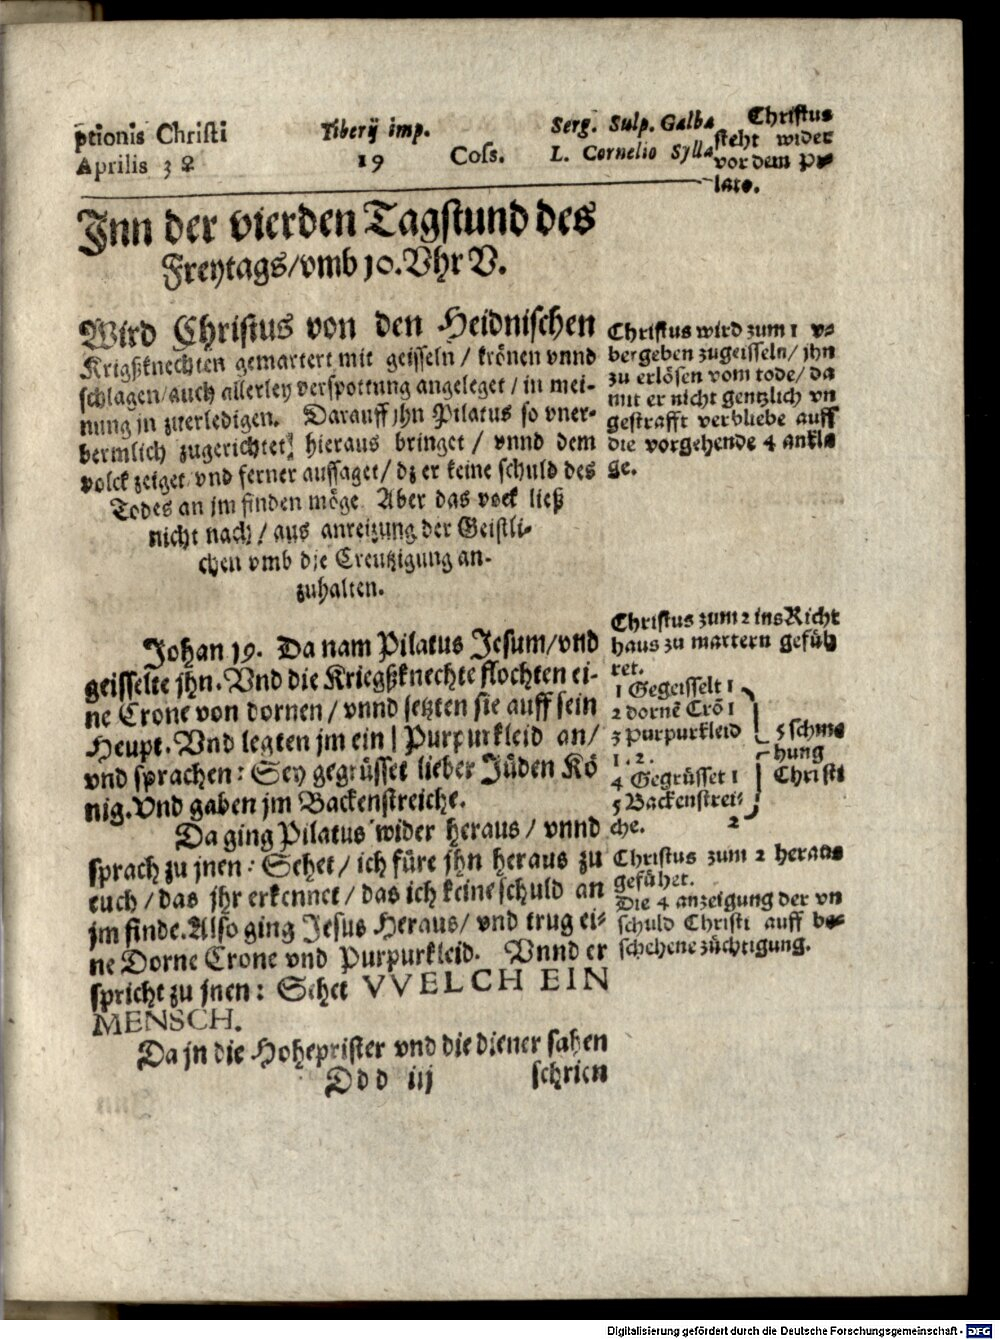 ptionis Christi Tiberij imp. Serg. Sulp. Galba
Aprilis 3 ♀ 19 Coſs. L. Cornelio Sylla
Chriſtus
ſteht wider
vor dem Pi⸗
lato.
Inn der vierden Tagſtund des
Freytags/vmb 10. Vhr V.
Wird Chriſtus von den Heidniſchen
Krigßknechten gemartert mit geiſſeln / krönen vnnd
ſchlagen/auch allerley verſpottung angeleget / in mei-
nung jn zuerledigen. Darauff jhn Pilatus ſo vner-
bermlich zugerichtet, hieraus bringet / vnnd dem
volck zeiget vnd ferner auſſaget/ dz er keine ſchuld des
Todes an jm finden möge. Aber das vock ließ
nicht nach / aus anreizung der Geiſtli-
chen vmb die Creutzigung an-
zuhalten.
Chriſtus wird zum 1 v⸗
bergeben zugeiſſeln/ jhn
zu erlöſen vom tode/ da
mit er nicht gentzlich vn
geſtrafft verbliebe auff
die vorgehende 4 ankla
ge.
Johan 19. Da nam Pilatus Jeſum/vnd
geiſſelte jhn. Vnd die Kriegßknechte flochten ei-
ne Crone von dornen / vnnd ſetzten ſie auff ſein
Heupt. Vnd legten jm ein Purpurkleid an/
vnd ſprachen: Sey gegrüſſet lieber Jüden Kö
nig. Vnd gaben jm Backenſtreiche.
Da ging Pilatus wider heraus / vnnd
ſprach zu jnen: Sehet / ich füre jhn heraus zu
euch / das jhr erkennet / das ich keine ſchuld an
jm finde. Alſo ging Jeſus Heraus/ vnd trug ei-
ne Dorne Crone vnd Purpurkleid. Vnnd er
ſpricht zu jnen: Sehet VVELCH EIN
MENSCH.
Da jn die Hoheprieſter vnd die diener ſahen
Ddd iij ſchrien
Chriſtus zum 2 ins Richt
haus zu martern gefüh
ret.
1 Gegeiſſelt 1
2 dornē Crō 1
3 Purpurkleid
1. 2.
4 Gegrüſſet 1
5 Backenſtrei⸗
che. 2
5 ſchme
hung
Chriſti
Chriſtus zum 2 heraus
gefühet.
Die 4 anzeigung der vn
ſchuld Chriſti auff be⸗
ſchehene züchtigung.
Digitalisierung gefördert durch die Deutsche Forschungsgemeinschaft - DFG